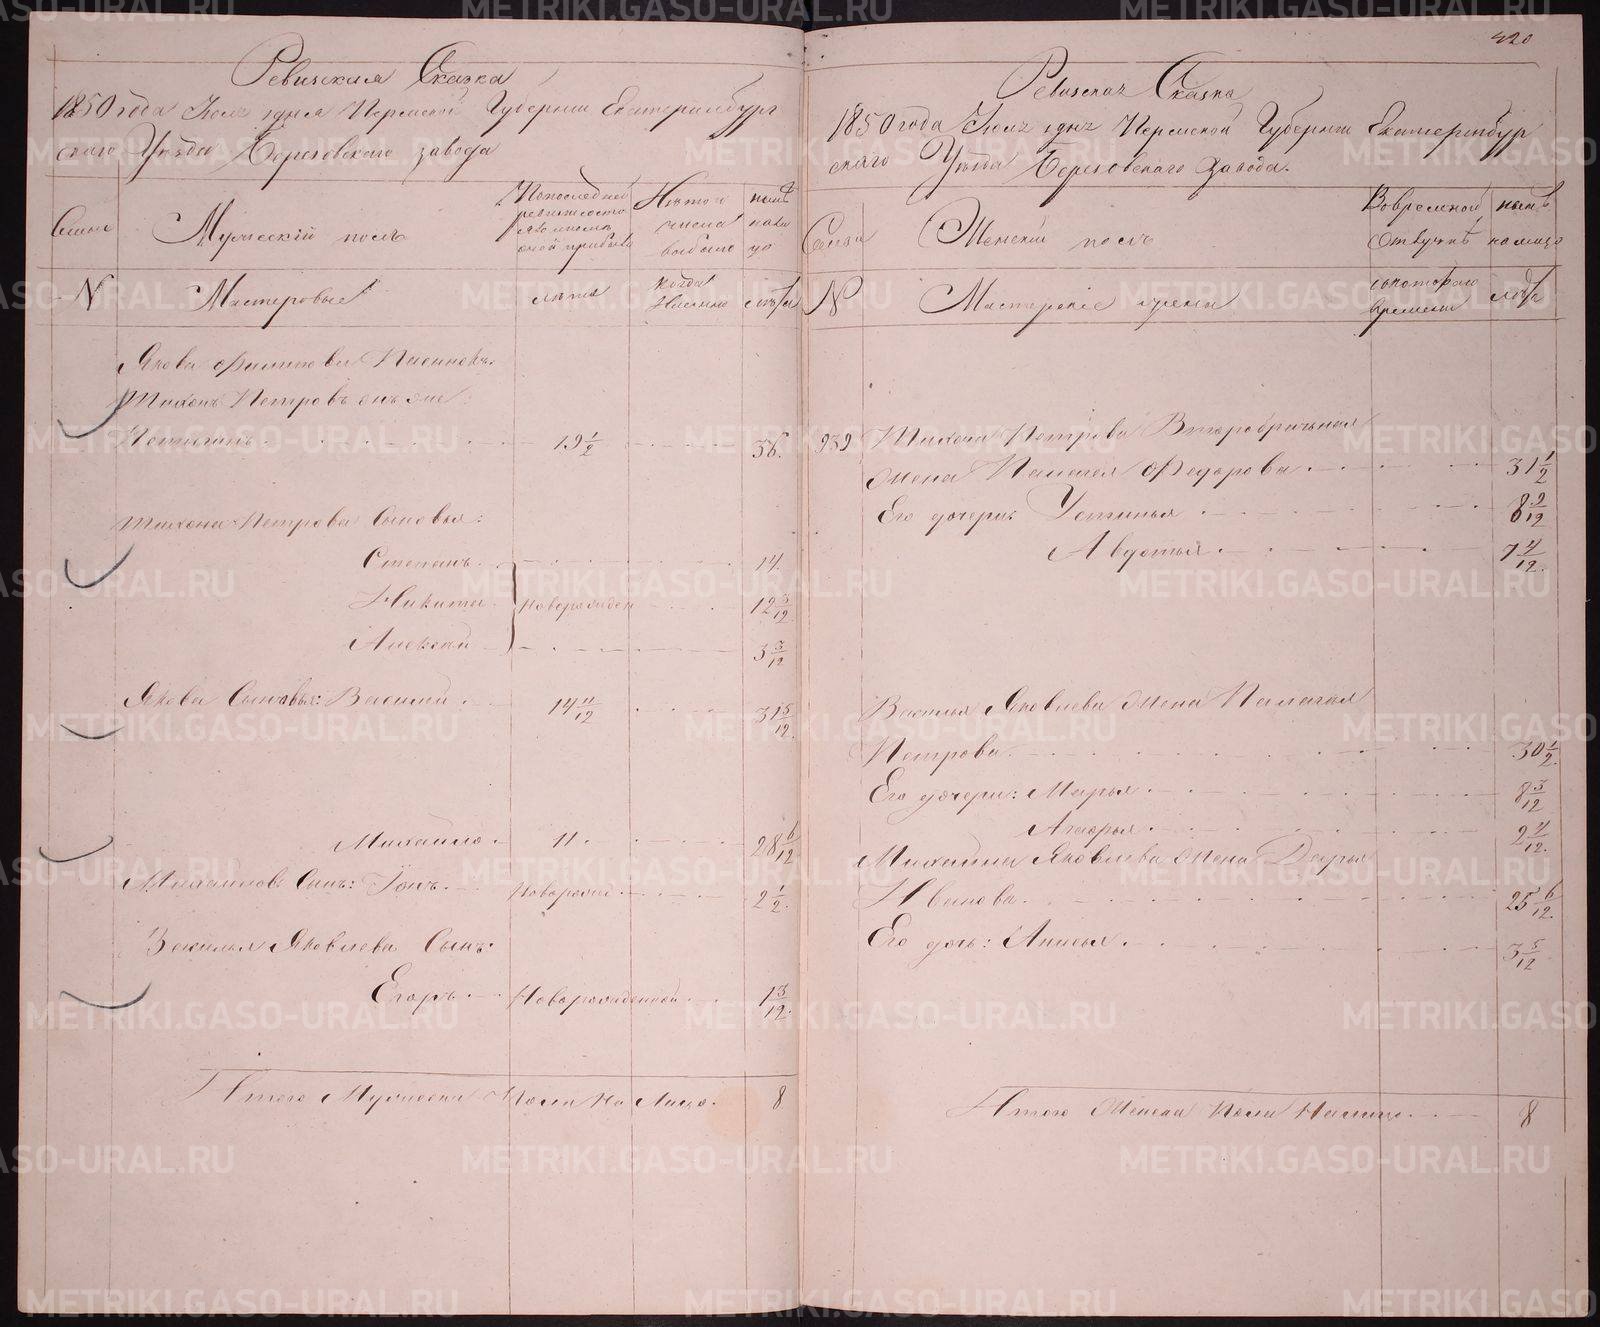 420
Ревизская Сказка
1850 года Июля 1 дня Пермской Губернии Екатеринбург
скаго Уѣзда Березовскаго завода
Семьи
Мужескій полъ
По последней ревизіи состояло
Изъ того числа выбыло
нынѣ на ли цо
N
Мастеровые
лѣта
когда именно
лѣта
Якова Филипова Пасынокъ:
Тихонъ Петровъ онъ же
19 1/2
36.
Тихона Петрова Сыновья:
Степанъ
14.
Никита
новорожден
12 3/12
Алексей
3 3/12
Якова Сыновья: Василий
14 11/12
31 5/12
Михайло
11
28 6/12
Михаилов Сынъ: Іонъ
новорожд
2 1/2
Василья Яковлева Сынъ:
Егоръ
Новорожденной
1 3/12
Итого Мужеска Пола На Лицо.
8
Ревизская Сказка
1850 года Июля 1 дня Пермской Губернии Екатеринбур
скаго Уѣзда Березовскаго Завода.
Семьи
Женскій полъ
Во временной отлучкѣ
нынѣ на лицо
N
Мастерскіе жены
съ котораго времени
лѣта
939
Тихона Петрова Второбрачная
жена Палагея Федорова
31 1/2
Его дочери: Устинья
8 9/12
Авдотья
7 4/12
Василья Яковлева жена Палагья
Петрова
30 1/2
Его дочери: Марья
8 3/12
2 4/12
Михаила Яковлева жена Дарья
Иванова
25 6/12
Его дочь: Анисья
3 5/12
Итого Женска Пола На лицо
8
METRIKI.GASO-URAL.RU